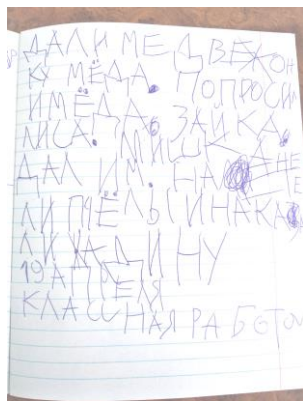 ДАЛИ МЕДВЕЖОН
КУ МЁДА. ПОПРОСИ
ИМЁДА
ЛИСА. ЗАЙКА.
МИШКА
ДАЛ ИМ. НА НЕ
ЛИ ПЧЁЛЫ И НАКА
ЛИ ЖАДИНУ
19 АПРЕЛЯ
КЛАССНАЯ РАБОТА